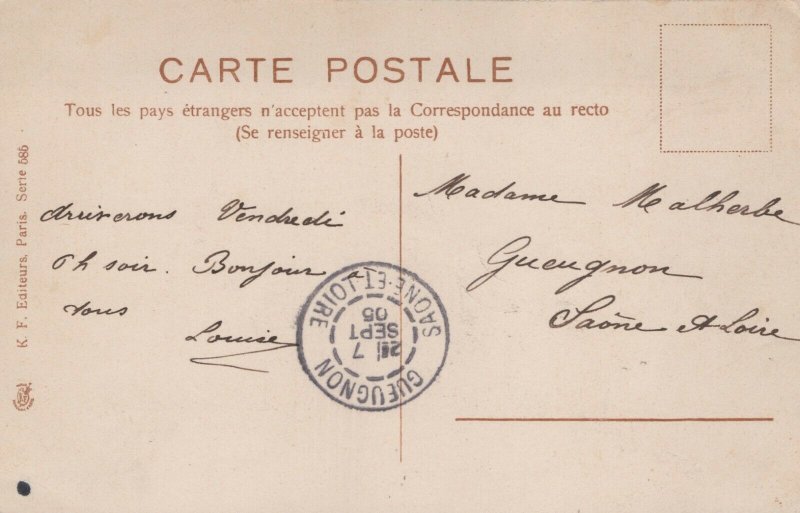 CARTE POSTALE
Tous les pays étrangers n'acceptent pas la Correspondance au recto
(Se renseigner à la poste)
K. F. Editeurs, Paris. Serie 585
arriverons Vendredi
6h soir. Bonjour à
tous
Louise
Madame Malherbe
Gueugnon
Saône et Loire
GUEUGNON
SAÔNE-ET-LOIRE
7
SEPT
05